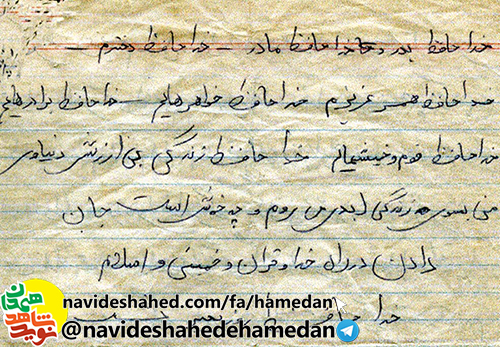 خداحافظ پدر و خداحافظ مادر – خداحافظ دخترم –
خداحافظ همسر عزیزم خداحافظ خواهرهایم – خداحافظ برادرهایم
خداحافظ قوم و خویشهایم خدا حافظ زندگی بی ارزش دنیاوی
من بسوی زندگی ابدی می روم و چه خوش است جان
دادن در راه خدا و قرآن و خمینی و اسلام
خدا
نوید شاهد همدان
navideshahed.com/fa/hamedan
@navideshahedehamedan